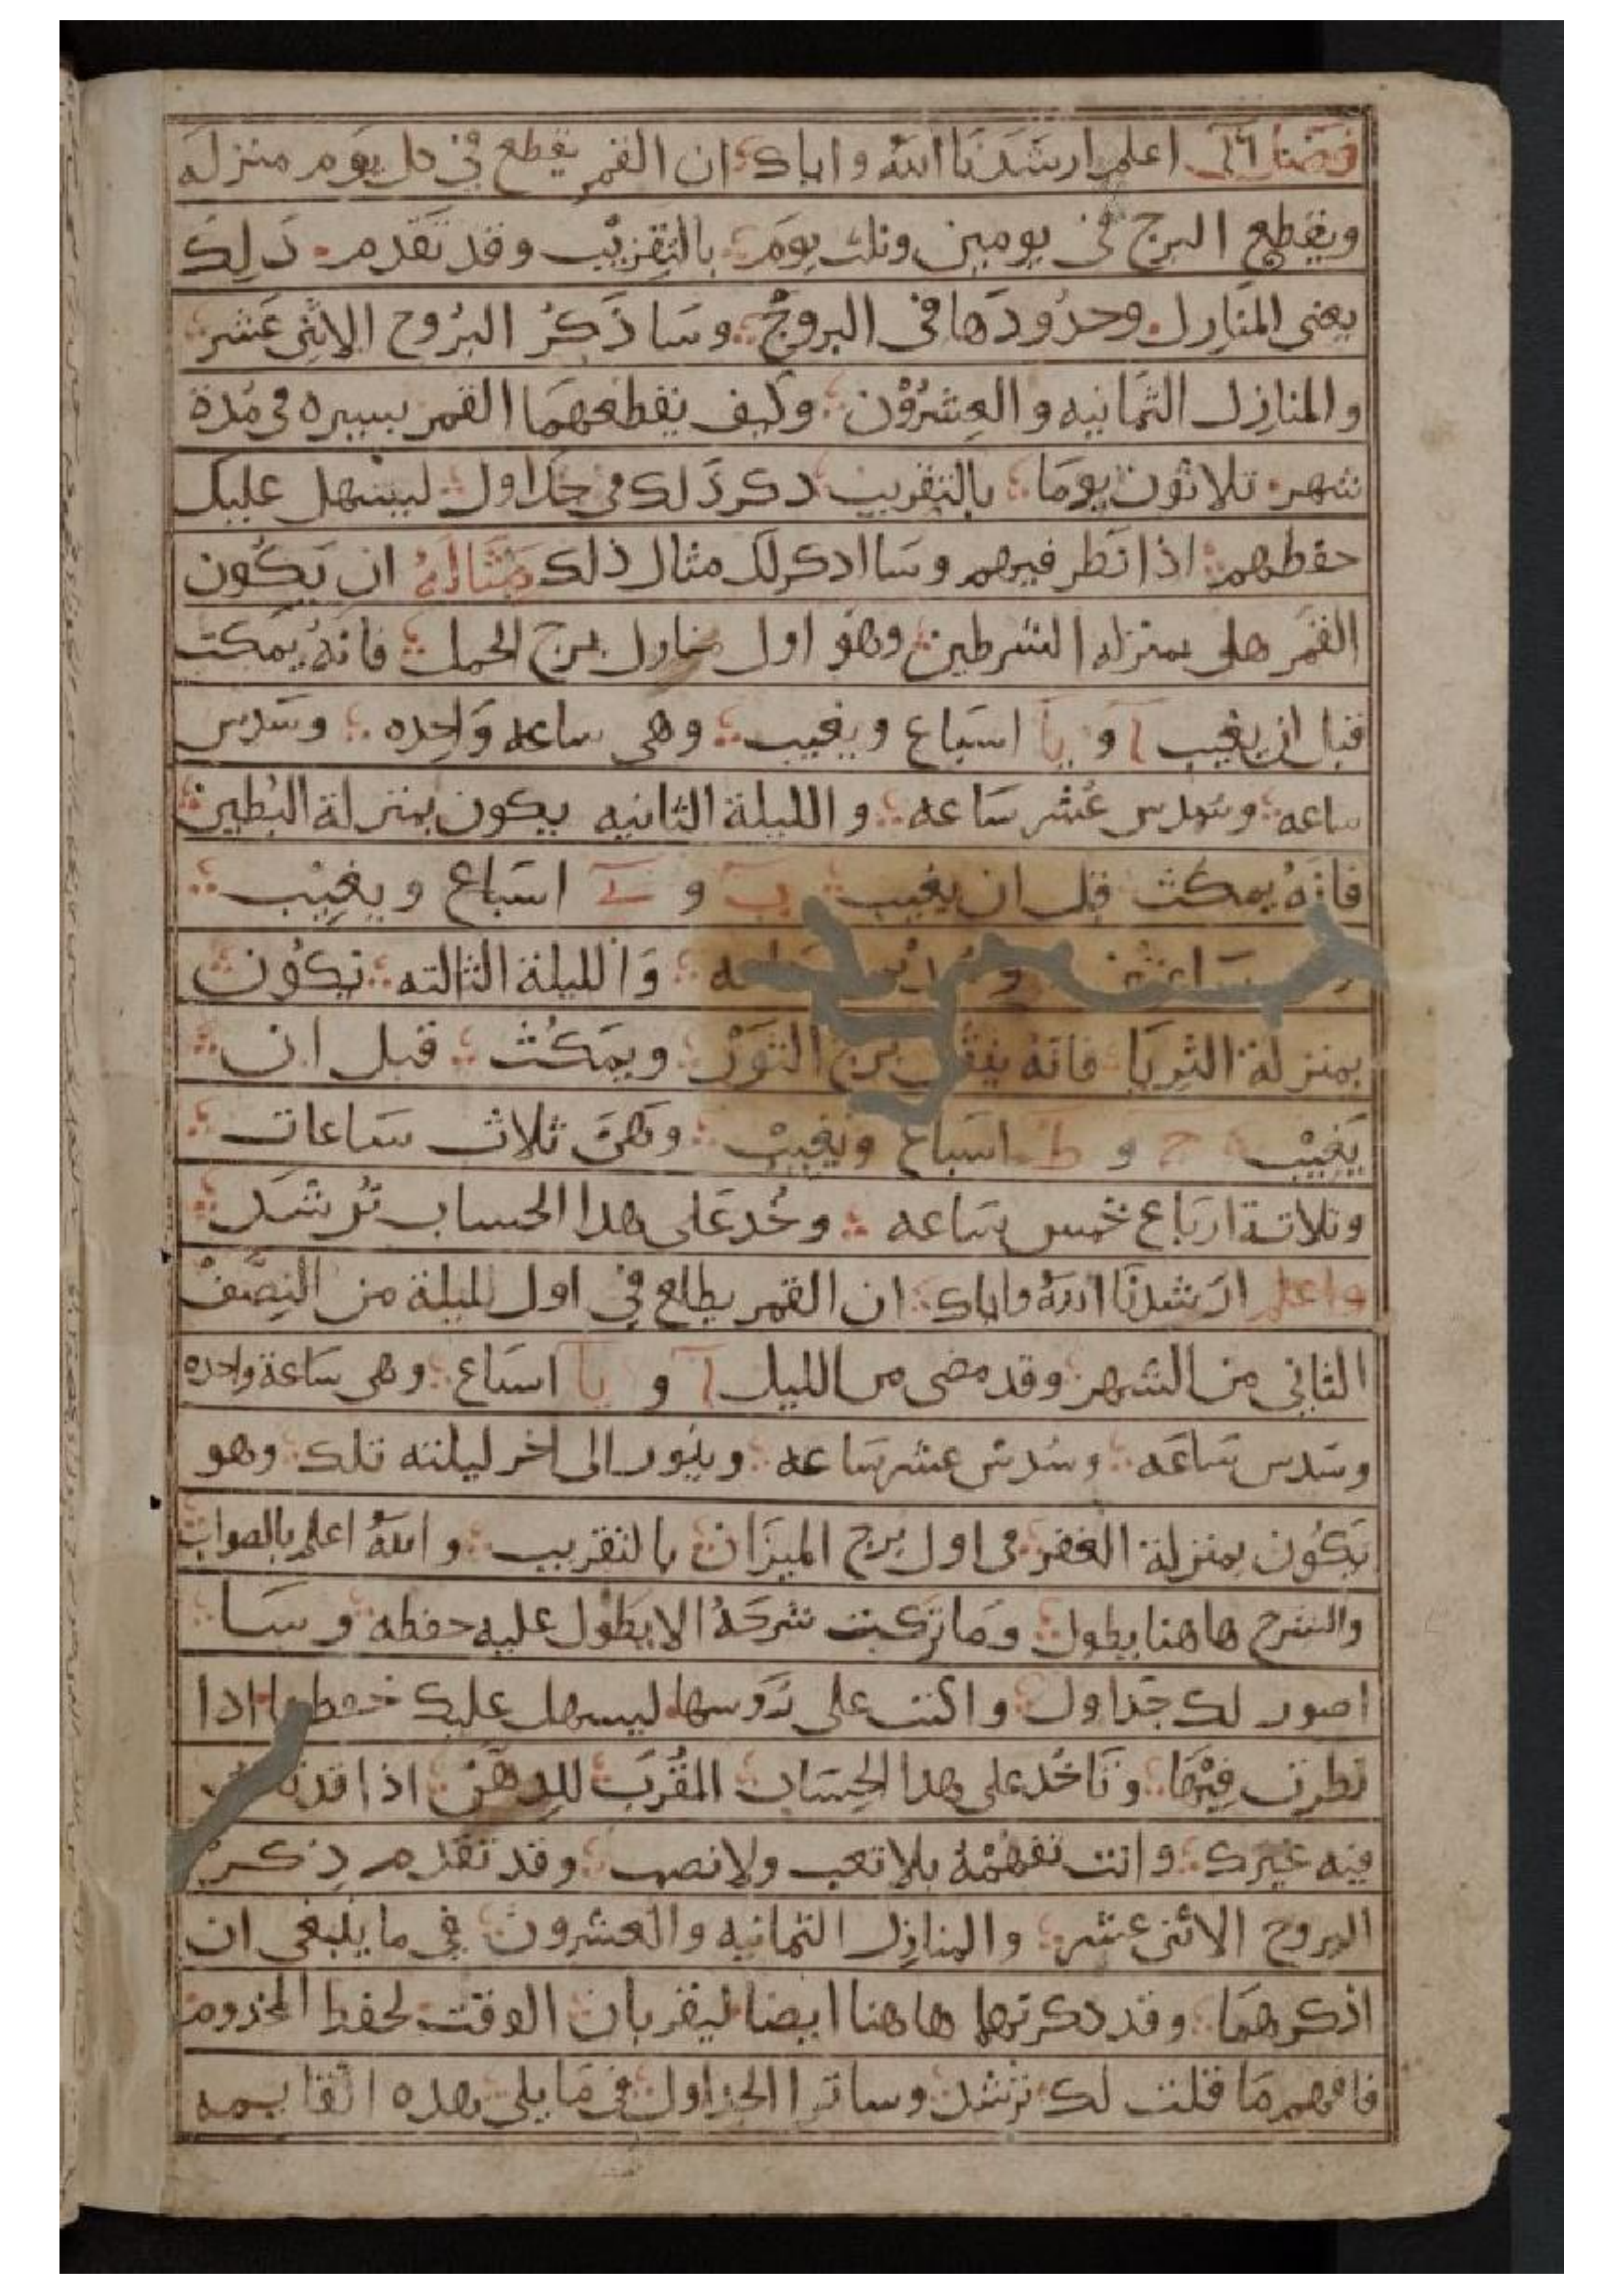 فصل اعلم ارشدنا الله واياك ان القمر يقطع في كل يوم منزله
ويقطع البرج في يومين وثلث يوم بالتقريب وقد تقدم ذلك
يعني المنازل وحدودها في البروج وسا ذكر البروج الاثنى عشر
والمنازل الثمانيه والعشرون وكيف يقطعهما القمر بسيره في مدة
شهر ثلاثون يوما بالتقريب دكر ذلك في جداول ليسهل عليك
حفظهم اذا نظر فيهم وسا ادكر لك مثال ذلك مثاله ان يكون
القمر هلى بمنزله الشرطين وهو اول منازل برج الحمل فانه يمكث
قبل ان يغيب ا و يا اسباع ويغيب وهي ساعه واحده وسدس
ساعه وسدس عشر ساعه والليلة الثانيه يكون بمنزلة البطين
فانه يمكث قبل ان يغيب ب و اسباع ويغيب
والليلة الثالثه تكون
بمنزلة الثريا فانه برج الثور ويمكث قبل ان
يغيب ج و ط اسباع ويغيب وهي ثلاث ساعات
وثلاثة ارباع خمس ساعه وخد على هدا الحساب ترشد
واعلم ارشدنا الله واياك ان القمر يطلع في اول ليلة من النصف
الثاني من الشهر وقد مضى من الليل ا و يا اسباع وهي ساعة واحده
وسدس ساعه وسدس عشر ساعه وينور الى اخر ليلته تلك وهو
يكون بمنزلة الغفر في اول برج الميزان بالتقريب والله اعلم بالصواب
والشرح هاهنا يطول وما تركبت شرحه الا يطول عليه حفظه وسا
اصور لك جداول واكتب على روسها ليسهل عليك حفظها ادا
نظرت فيها وتاخد على هدا الحساب المقرب للدهن اذا
فيه غيرك وانت تفهمه بلا تعب ولا نصب وقد تقدم ذكر
البروج الاثنى عشر والمنازل الثمانيه والعشرون في ما ينبغي ان
اذكرهما وقد دكرتهما هاهنا ايضا ليقربان الوقت لحفظ
فافهم ما قلت لك ترشد وسا ترا الجداول في ما يلي هده القايمه